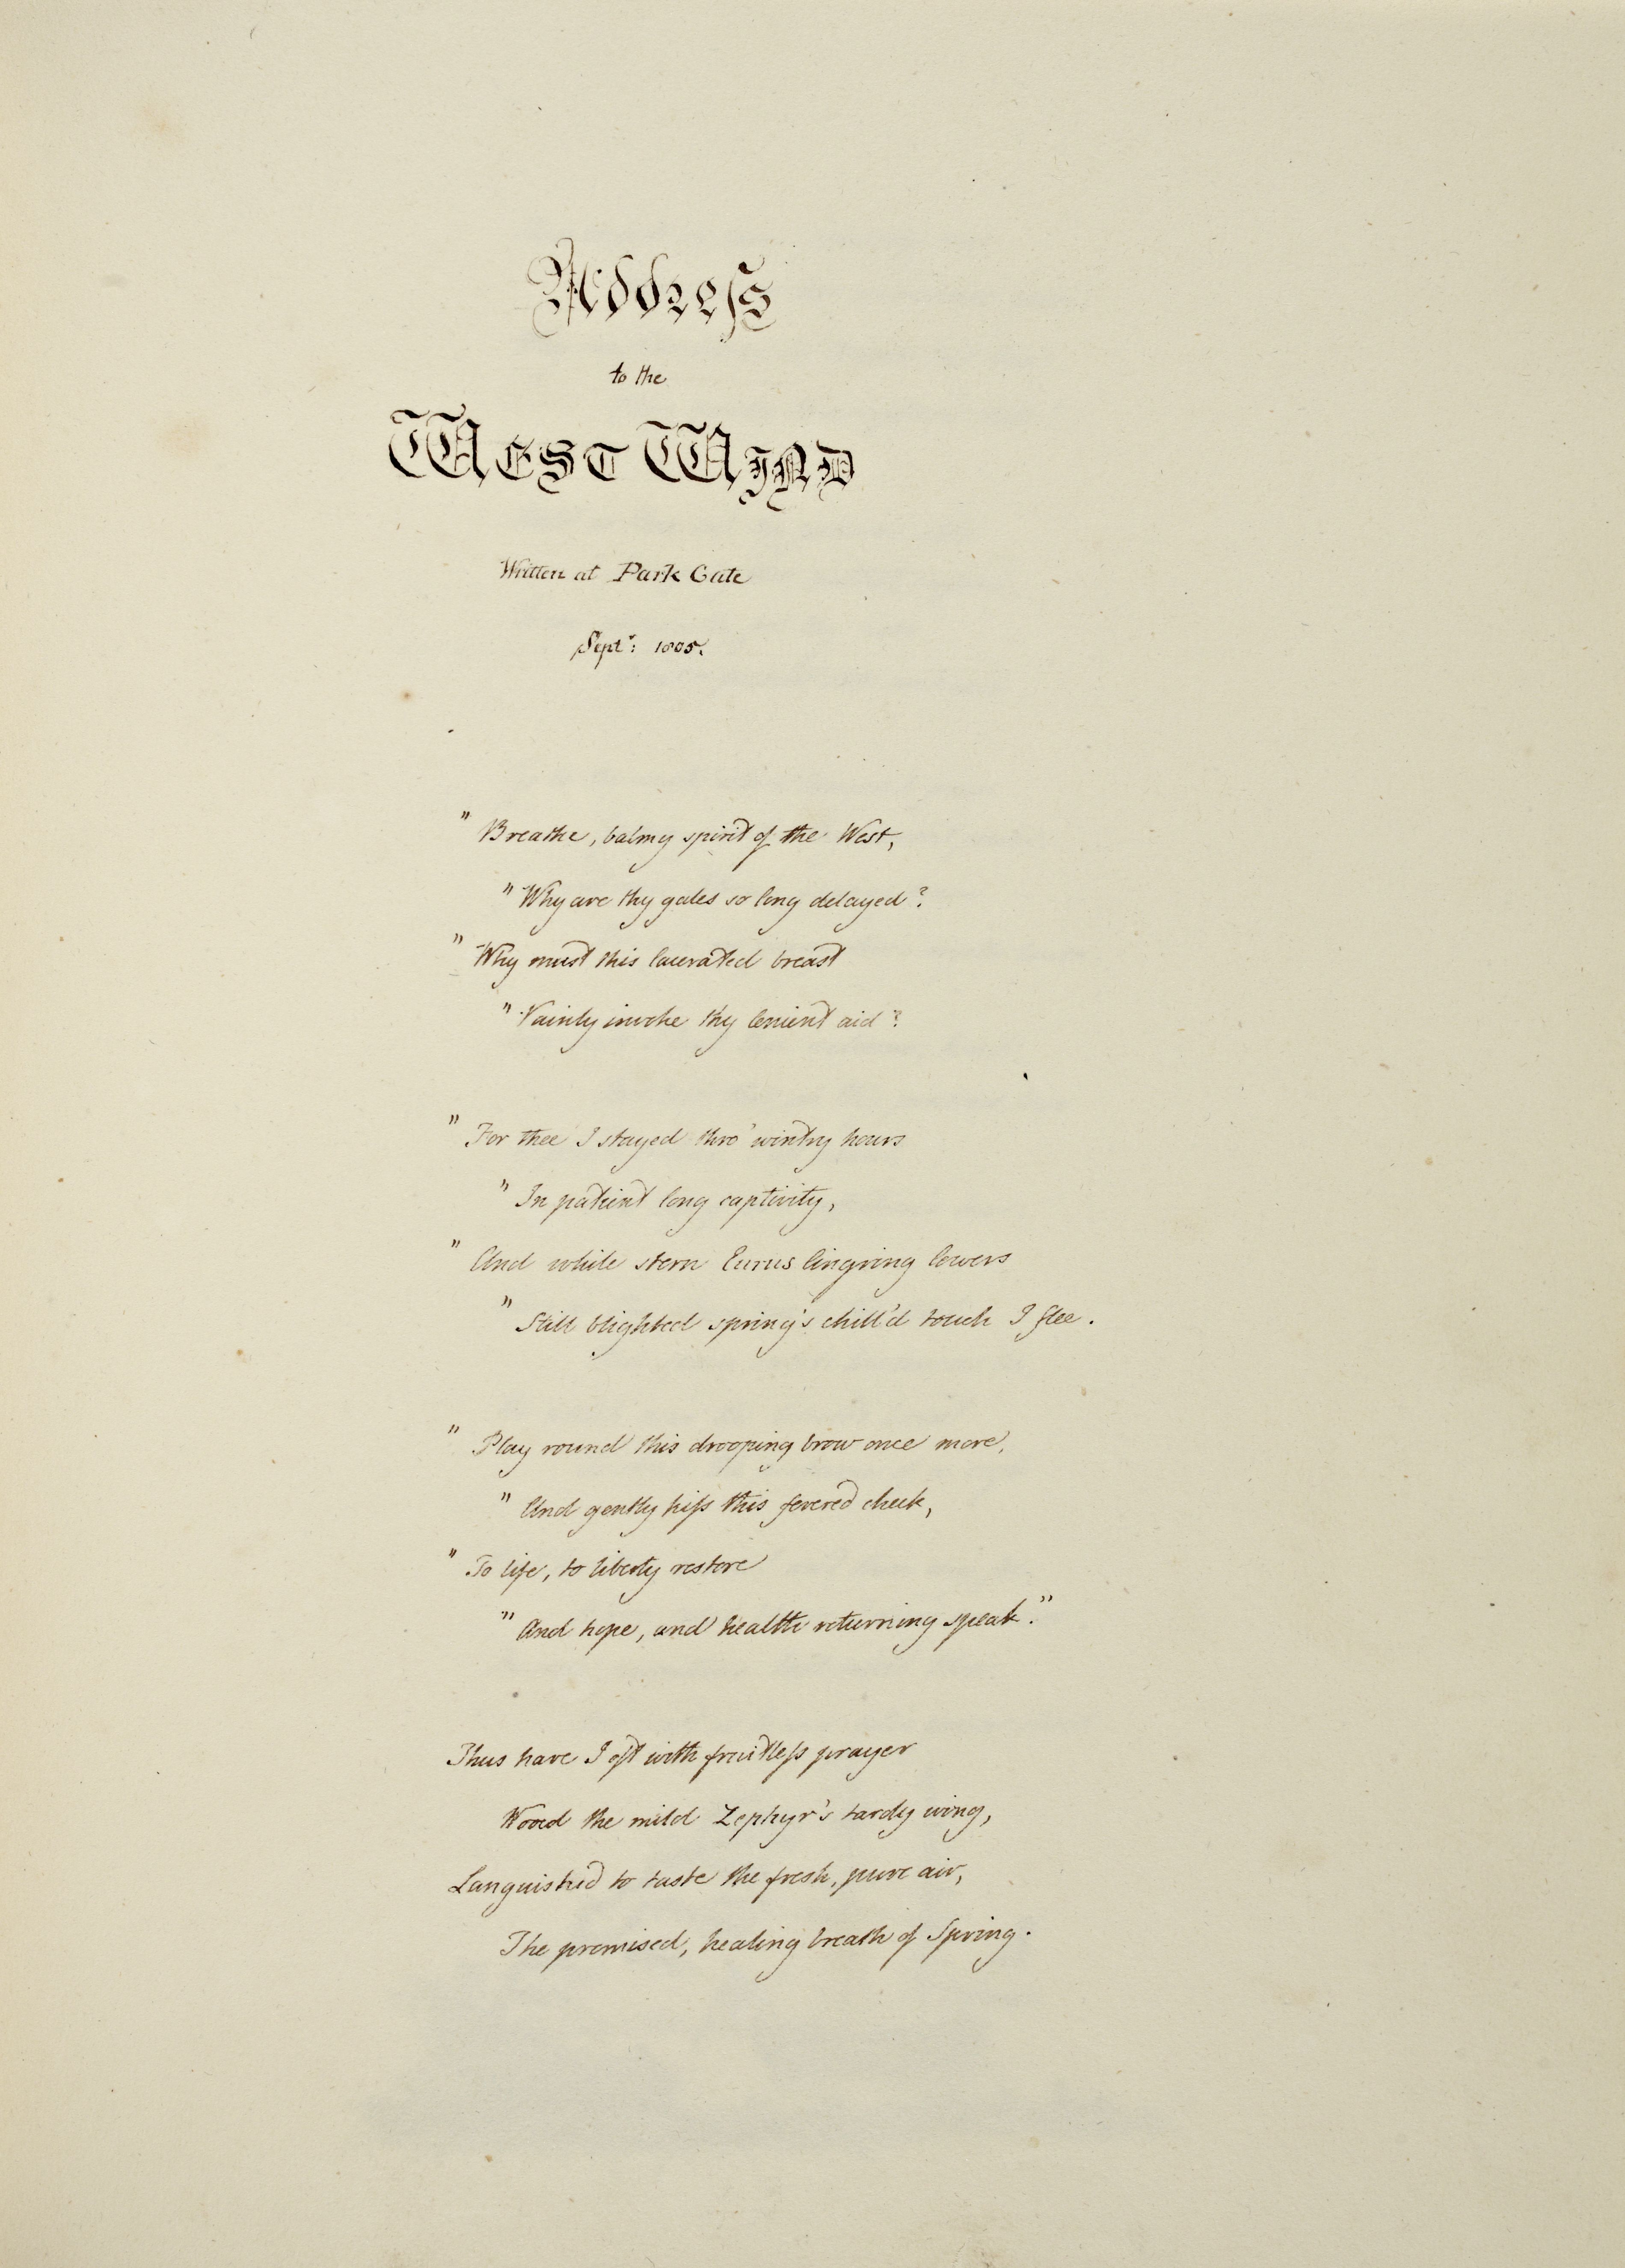 Addreſs
to the
WEST WIND
Written at Park Gate
Septr: 1805.
" Breathe, balmy spirit of the West,
" Why are thy gales so long delayed?
" Why must this lacerated breast
" Vainly invoke thy lenient aid?
" For thee I stayed thro' wintry hours
" In patient long captivity,
" And while stern Eurus lingring lowers
" Still blighted spring's chill'd touch I flee.
" Play round this drooping brow once more,
" And gently kiſs this fevered cheek,
" To life, to liberty restore
" And hope, and health returning speak."
Thus have I oft with fruitleſs prayer
Wooed the mild Zephyr's tardy wing,
Languished to taste the fresh, pure air,
The promised, healing breath of Spring.